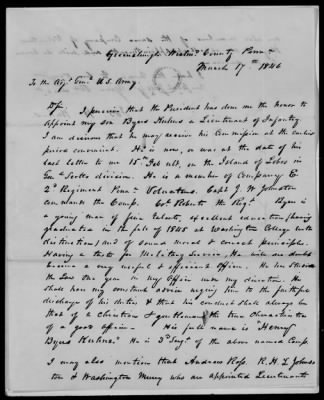 Greensburgh Westmd County Penna
March 17th 1846
To the Adjt Genl U.S. Army
Sir, I perceive that the President has done me the honor to
appoint my son Byers Kuhns a Lieutenant of Infantry
I am desirous that he may receive his Commission at the earliest
period convenient. He is now, or was at the date of his
last letter to me 15th Feb ult, on the Island of Lobos in
Genl Scotts division. He is a member of Company E
2d Regiment Penna Volunteers. Capt J. W. Johnston
commands the Comp. Col Roberts the Regt. Byers is
a young man of fine talents, excellent education (having
graduated in the fall of 1845 at Washington College with
distinction) and of sound moral & correct principle.
Having a taste for Military Service, He will no doubt
become a very useful & efficient Officer. He has studied
the Law One year in My Office under my direction. He
shall have my constant advice urging him to the faithful
discharge of his duties & that his conduct shall always be
that of a christian & gentleman the true Characteristics
of a good officer. His full name is "Henry
Byers Kuhns." He is 3d Sergt of the above named Comp.
I may also mention that Andrew Ross, R. H. L. Johns-
ton & Washington Murry who are appointed Lieutenants